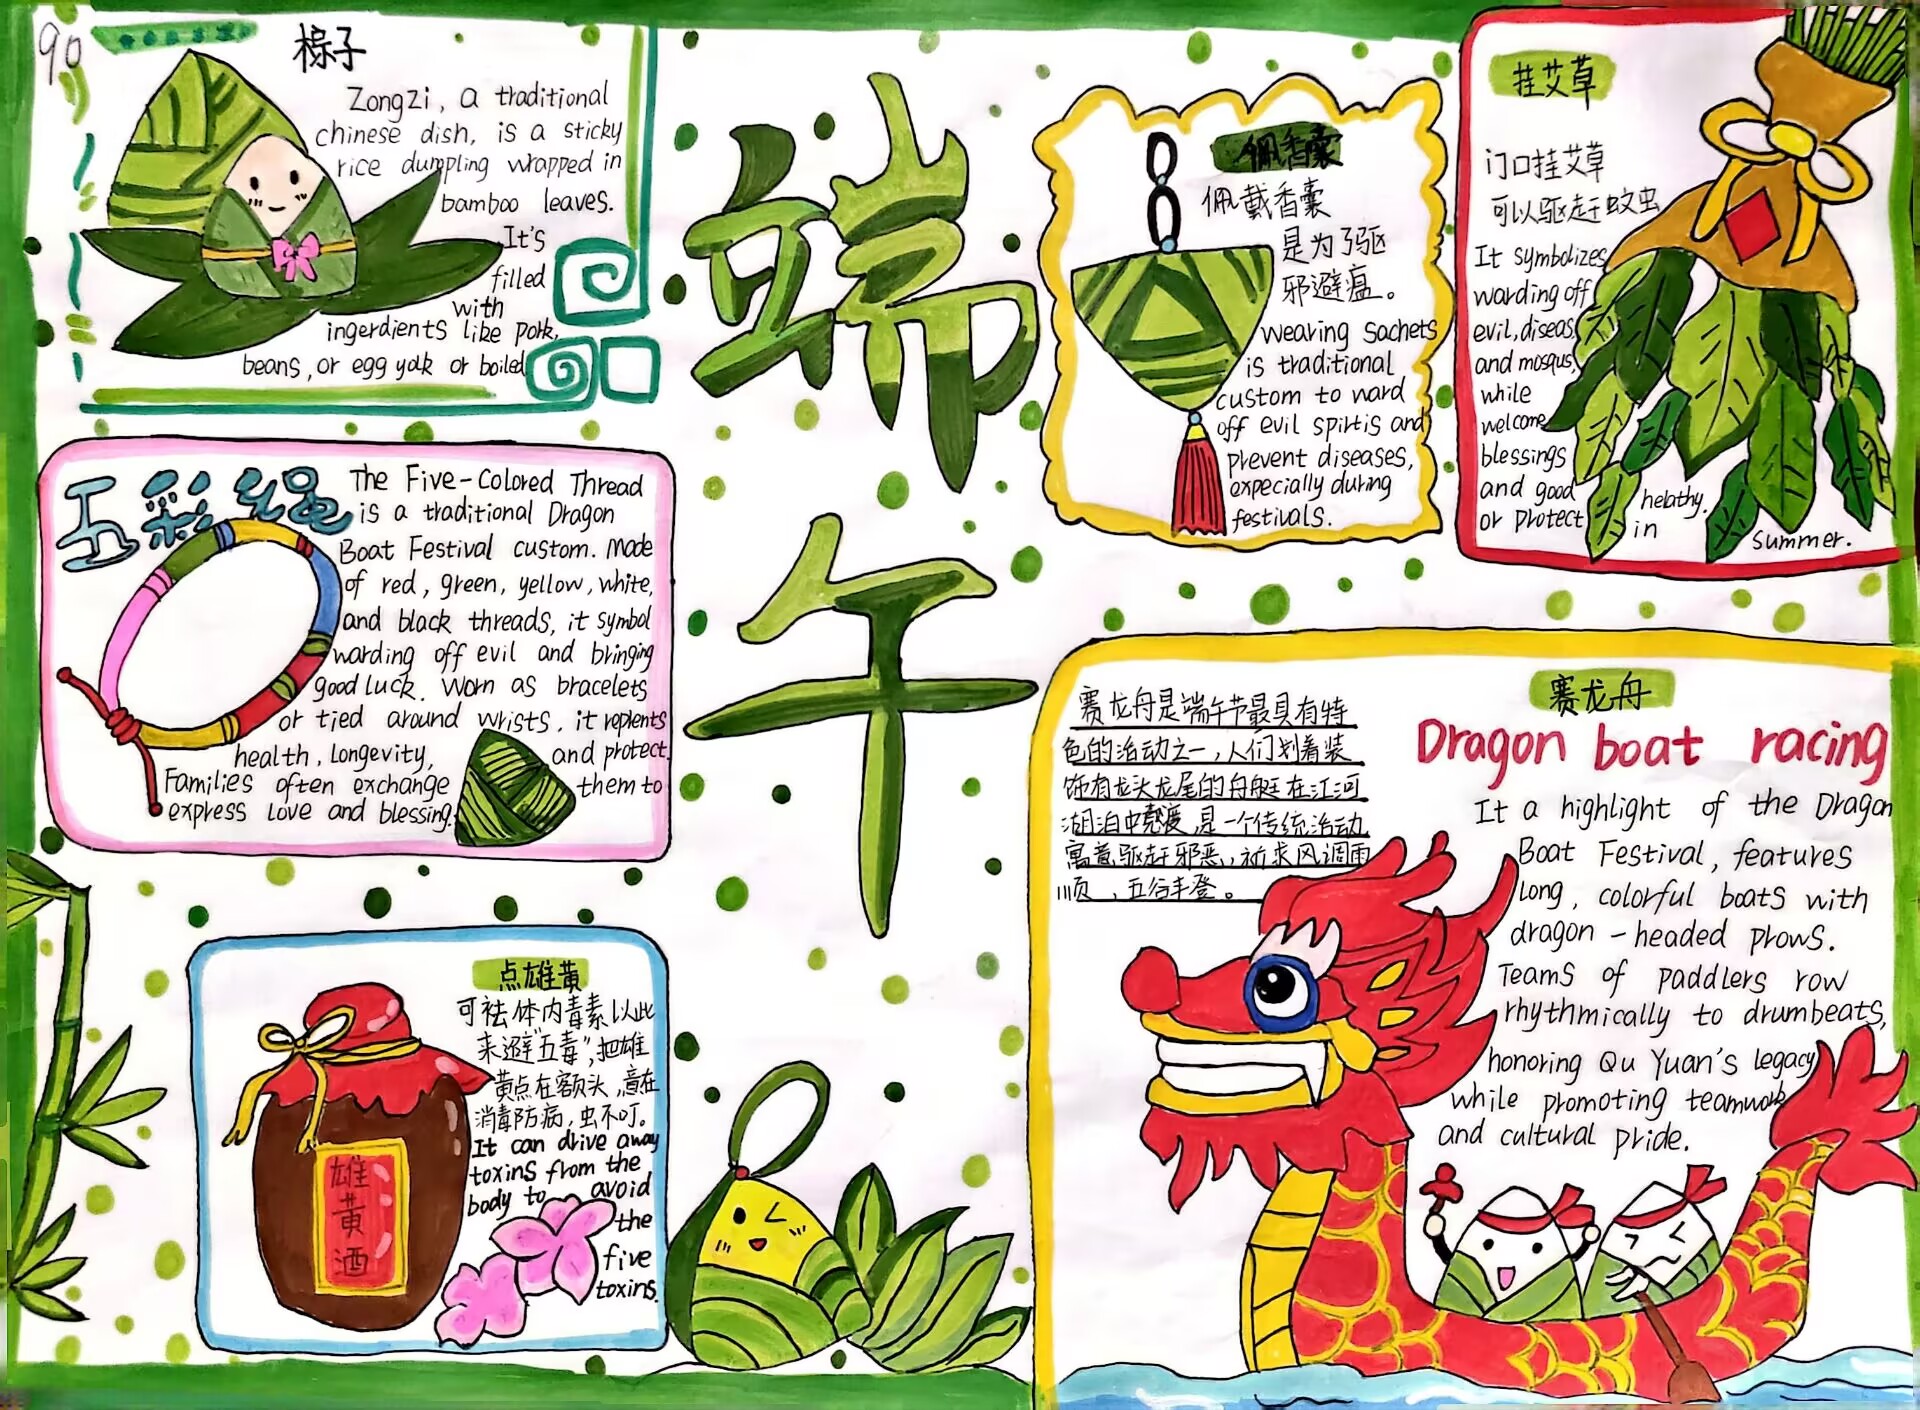 90
粽子
Zongzi, a traditional
chinese dish, is a sticky
rice dumpling wrapped in
bamboo leaves.
It's
filled
with
ingerdients like pork,
beans, or egg yolk or boiled
端
午
佩香囊
佩戴香囊
是为了驱
邪避瘟。
wearing sachets
is traditional
custom to ward
off evil spirtis and
prevent diseases,
expecially during
festivals.
挂艾草
门口挂艾草
可以驱赶蚊虫
It symbolizes
warding off
evil, diseas,
and mosqus,
while
welcome
blessings
and good helathy.
or protect in summer.
五彩绳
The Five-Colored Thread
is a traditional Dragon
Boat Festival custom. Made
of red, green, yellow, white,
and black threads, it symbol
warding off evil and bringing
good luck. Worn as bracelets
or tied around wrists, it replents
health, longevity, and protect.
Families often exchange them to
express love and blessing.
点雄黄
可祛体内毒素以此
来避“五毒”,把雄
黄点在额头,意在
消毒防病,虫不叮。
It can drive away
toxins from the
body to avoid
the
five
toxins.
雄
黄
酒
赛龙舟
Dragon boat racing
赛龙舟是端午节最具有特
色的活动之一,人们划着装
饰有龙头龙尾的舟艇在江河
湖泊中竞渡,是一个传统活动
寓意驱赶邪恶,祈求风调雨
顺,五谷丰登。
It a highlight of the Dragon
Boat Festival, features
long, colorful boats with
dragon-headed prows.
Teams of paddlers row
rhythmically to drumbeats,
honoring Qu Yuan's legacy
while promoting teamwork
and cultural pride.